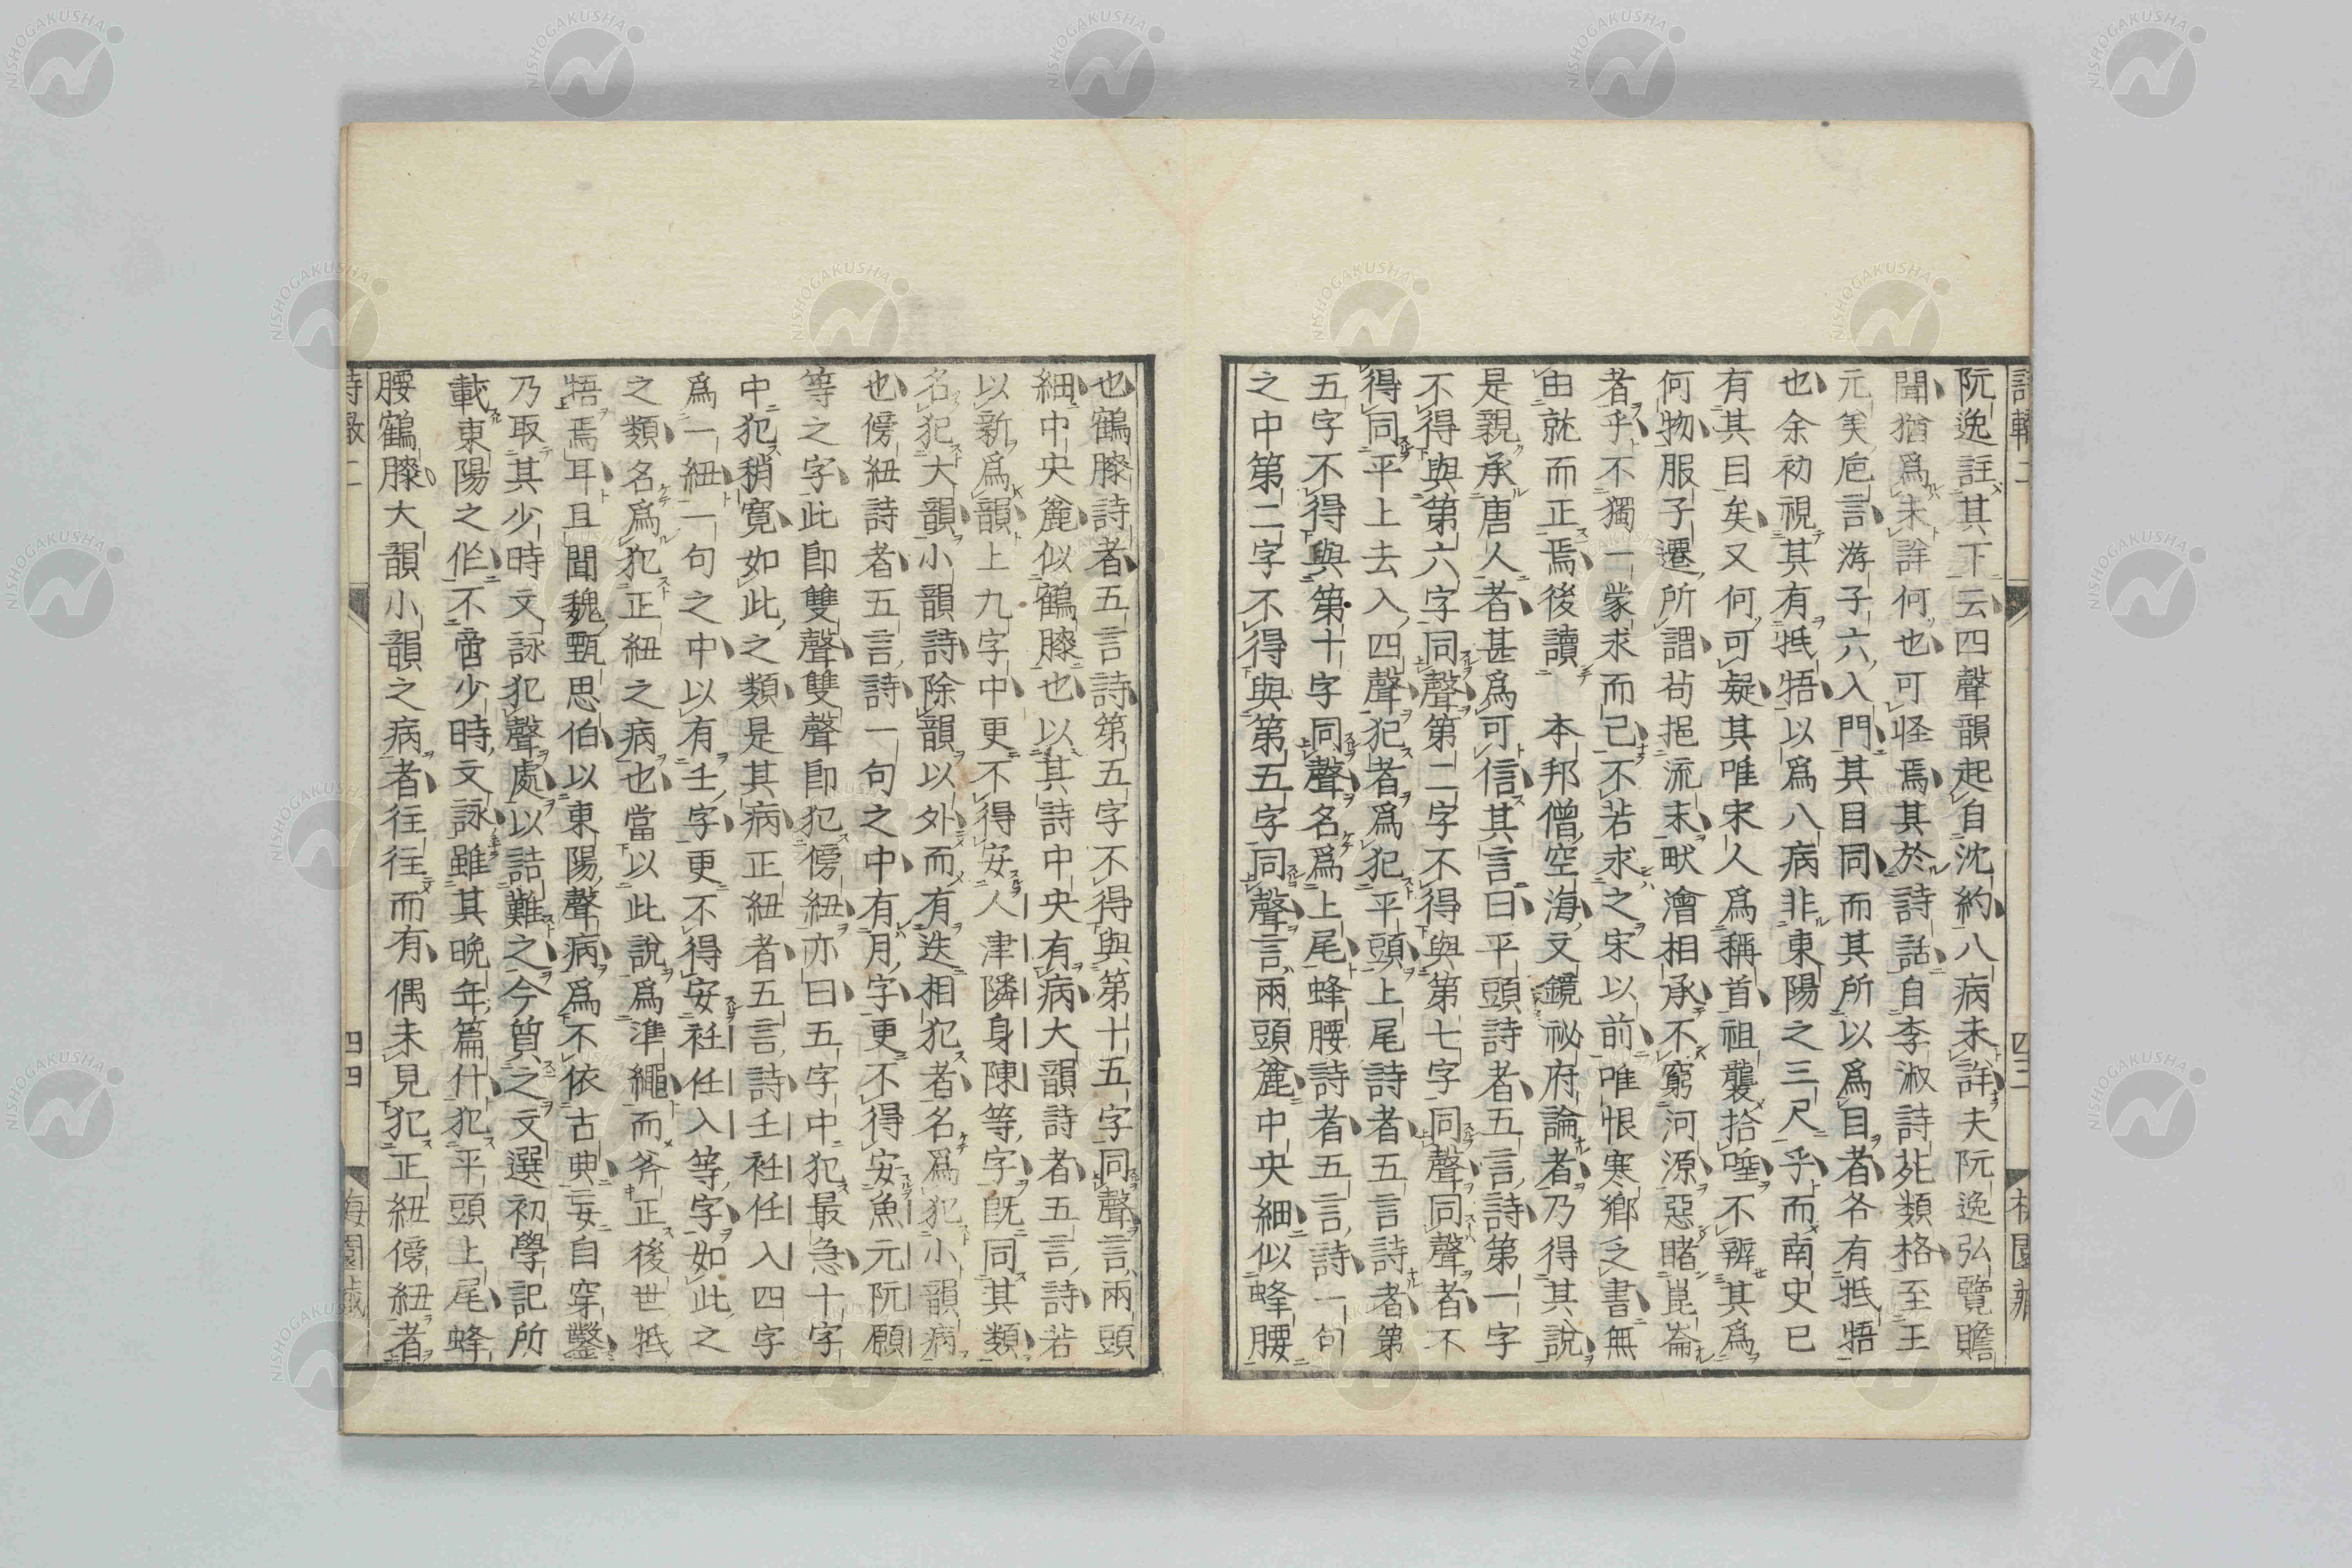 阮逸註其下云四聲韻起自沈約八病未詳夫阮逸弘覽贍
聞猶爲未詳何也可怪焉其於詩話自李淑詩苑類格至王
元美巵言游子六入門其目同而其所以爲目者各有牴牾
也余初視其有牴牾以爲八病非東陽之三尺乎而南史已
有其目矣又何可疑其唯宋人爲稱首祖襲拾唾不辨其爲
何物服子遷所謂苟挹流末畎澮相承不窮河源惡睹崑崙
者乎不獨一蒙求而已不若求之宋以前唯恨寒鄉乏書無
由就而正焉後讀 本邦僧空海文鏡祕府論者乃得其說
是親承唐人者甚爲可信其言曰平頭詩者五言詩第一字
不得與第六字同聲第二字不得與第七字同聲同聲者不
得同平上去入四聲犯者爲犯平頭上尾詩者五言詩者第
五字不得與第十字同聲名爲上尾蜂腰詩者五言詩一句
之中第二字不得與第五字同聲言兩頭麁中央細似蜂腰
也鶴膝詩者五言詩第五字不得與第十五字同聲言兩頭
細中央麁似鶴膝也以其詩中央有病大韻詩者五言詩若
以新爲韻上九字中更不得安人津隣身陳等字旣同其類
名犯大韻小韻詩除韻以外而有迭相犯者名爲犯小韻病
也傍紐詩者五言詩一句之中有月字更不得安魚元阮願
等之字此卽雙聲雙聲卽犯傍紐亦曰五字中犯最急十字
中犯稍寬如此之類是其病正紐者五言詩壬衽任入四字
爲一紐一句之中以有壬字更不得安衽任入等字如此之
之類名爲犯正紐之病也當以此說爲準繩而斧正後世牴
牾焉耳且聞魏甄思伯以東陽聲病爲不依古典妄自穿鑿
乃取其少時文詠犯聲處以詰難之今質之文選初學記所
載東陽之作不啻少時文詠雖其晚年篇什犯平頭上尾蜂
腰鶴膝大韻小韻之病者往往而有偶未見犯正紐傍紐者
四四